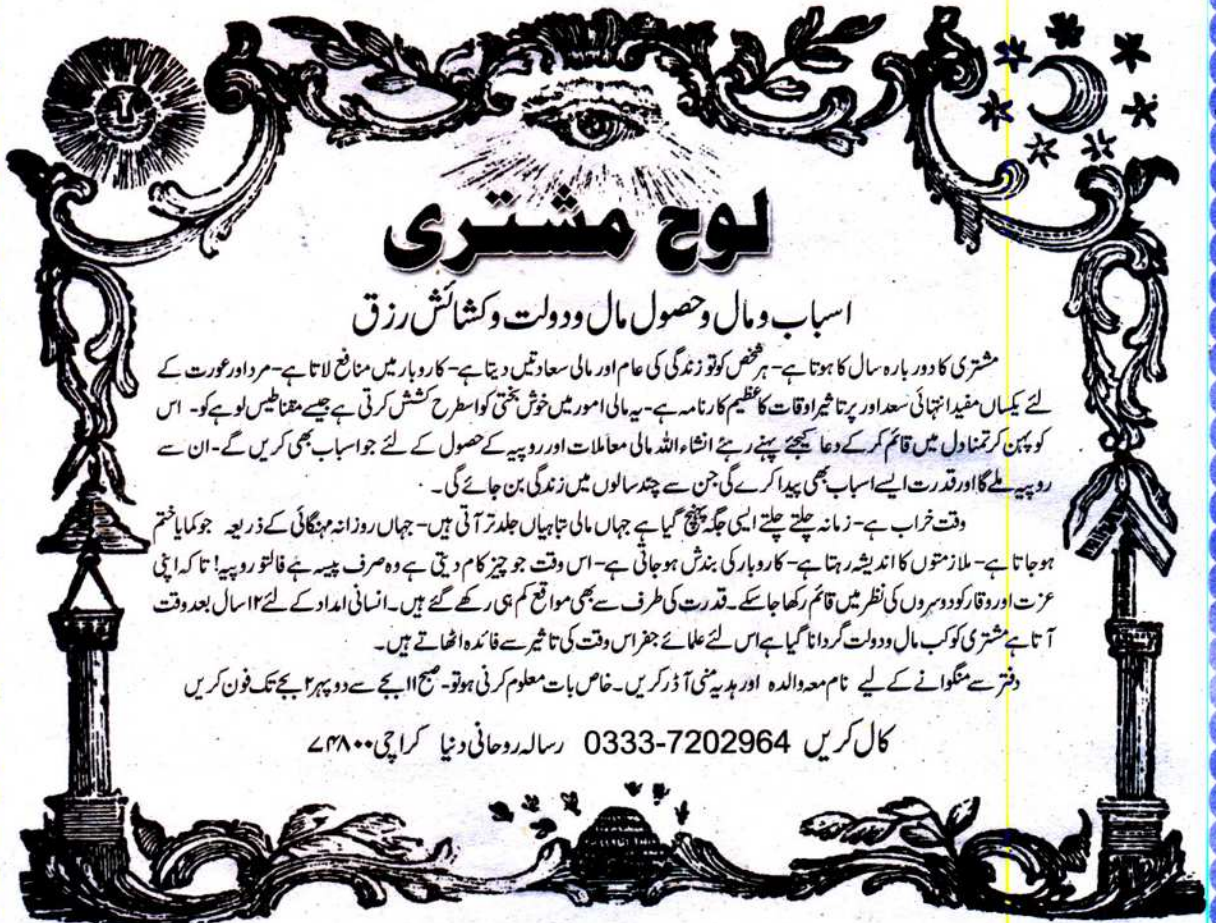 لوح مشتری
اسباب و مال و حصول مال و دولت و کشائش رزق
مشتری کا دور بارہ سال کا ہوتا ہے- ہر شخص کو تو زندگی کی عام اور مالی سعادتیں دیتا ہے- کاروبار میں منافع لاتا ہے- مرد اور عورت کے
لئے یکساں مفید انتہائی سعد اور پر تاثیر اوقات کا عظیم کارنامہ ہے- یہ مالی امور میں خوش بختی کو اسطرح کشش کرتی ہے جیسے مقناطیس لوہے کو- اس
کو پہن کر تمنا دل میں قائم کر کے دعا کیجئے پہنے رہئے انشاء اللہ مالی معاملات اور روپیہ کے حصول کے لئے جو اسباب بھی کریں گے- ان سے
روپیہ ملے گا اور قدرت ایسے اسباب بھی پیدا کرے گی جن سے چند سالوں میں زندگی بن جائے گی۔
وقت خراب ہے- زمانہ چلتے چلتے ایسی جگہ پہنچ گیا ہے جہاں مالی تباہیاں جلد تر آتی ہیں- جہاں روزانہ مہنگائی کے ذریعہ جو کمایا ختم
ہوجاتا ہے- ملازمتوں کا اندیشہ رہتا ہے- کاروبار کی بندش ہوجاتی ہے- اس وقت جو چیز کام دیتی ہے وہ صرف پیسہ ہے فالتو روپیہ! تا کہ اپنی
عزت اور وقار کو دوسروں کی نظر میں قائم رکھا جا سکے۔ قدرت کی طرف سے بھی مواقع کم ہی رکھے گئے ہیں۔ انسانی امداد کے لئے ۱۲ سال بعد وقت
آتا ہے مشتری کو کب مال و دولت گردانا گیا ہے اس لئے علمائے جفر اس وقت کی تاثیر سے فائدہ اٹھاتے ہیں۔
دفتر سے منگوانے کے لیے نام معہ والدہ اور ہدیہ منی آڈر کریں۔ خاص بات معلوم کرنی ہو تو- صبح ۱۱ بجے سے دوپہر ۲ بجے تک فون کریں
کال کریں 0333-7202964 رسالہ روحانی دنیا کراچی ۷۴۸۰۰